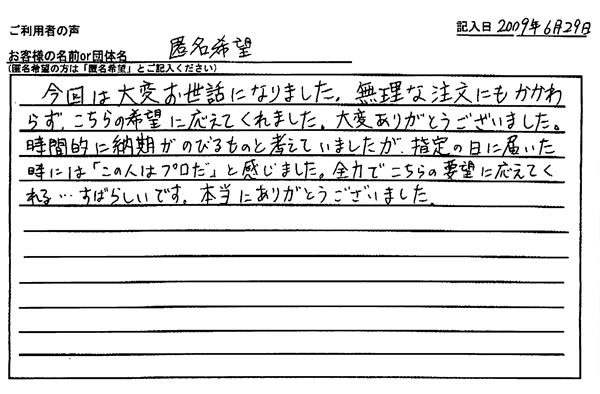 ご利用者の声
記入日 2009年6月29日
お客様の名前or団体名 匿名希望
(匿名希望の方は「匿名希望」とご記入ください)
今回は大変お世話になりました。無理な注文にもかかわ
らず、こちらの希望に応えてくれました。大変ありがとうございました。
時間的に納期がのびるものと考えていましたが、指定の日に届いた
時には「この人はプロだ」と感じました。全力でこちらの要望に応えてく
れる…すばらしいです。本当にありがとうございました。